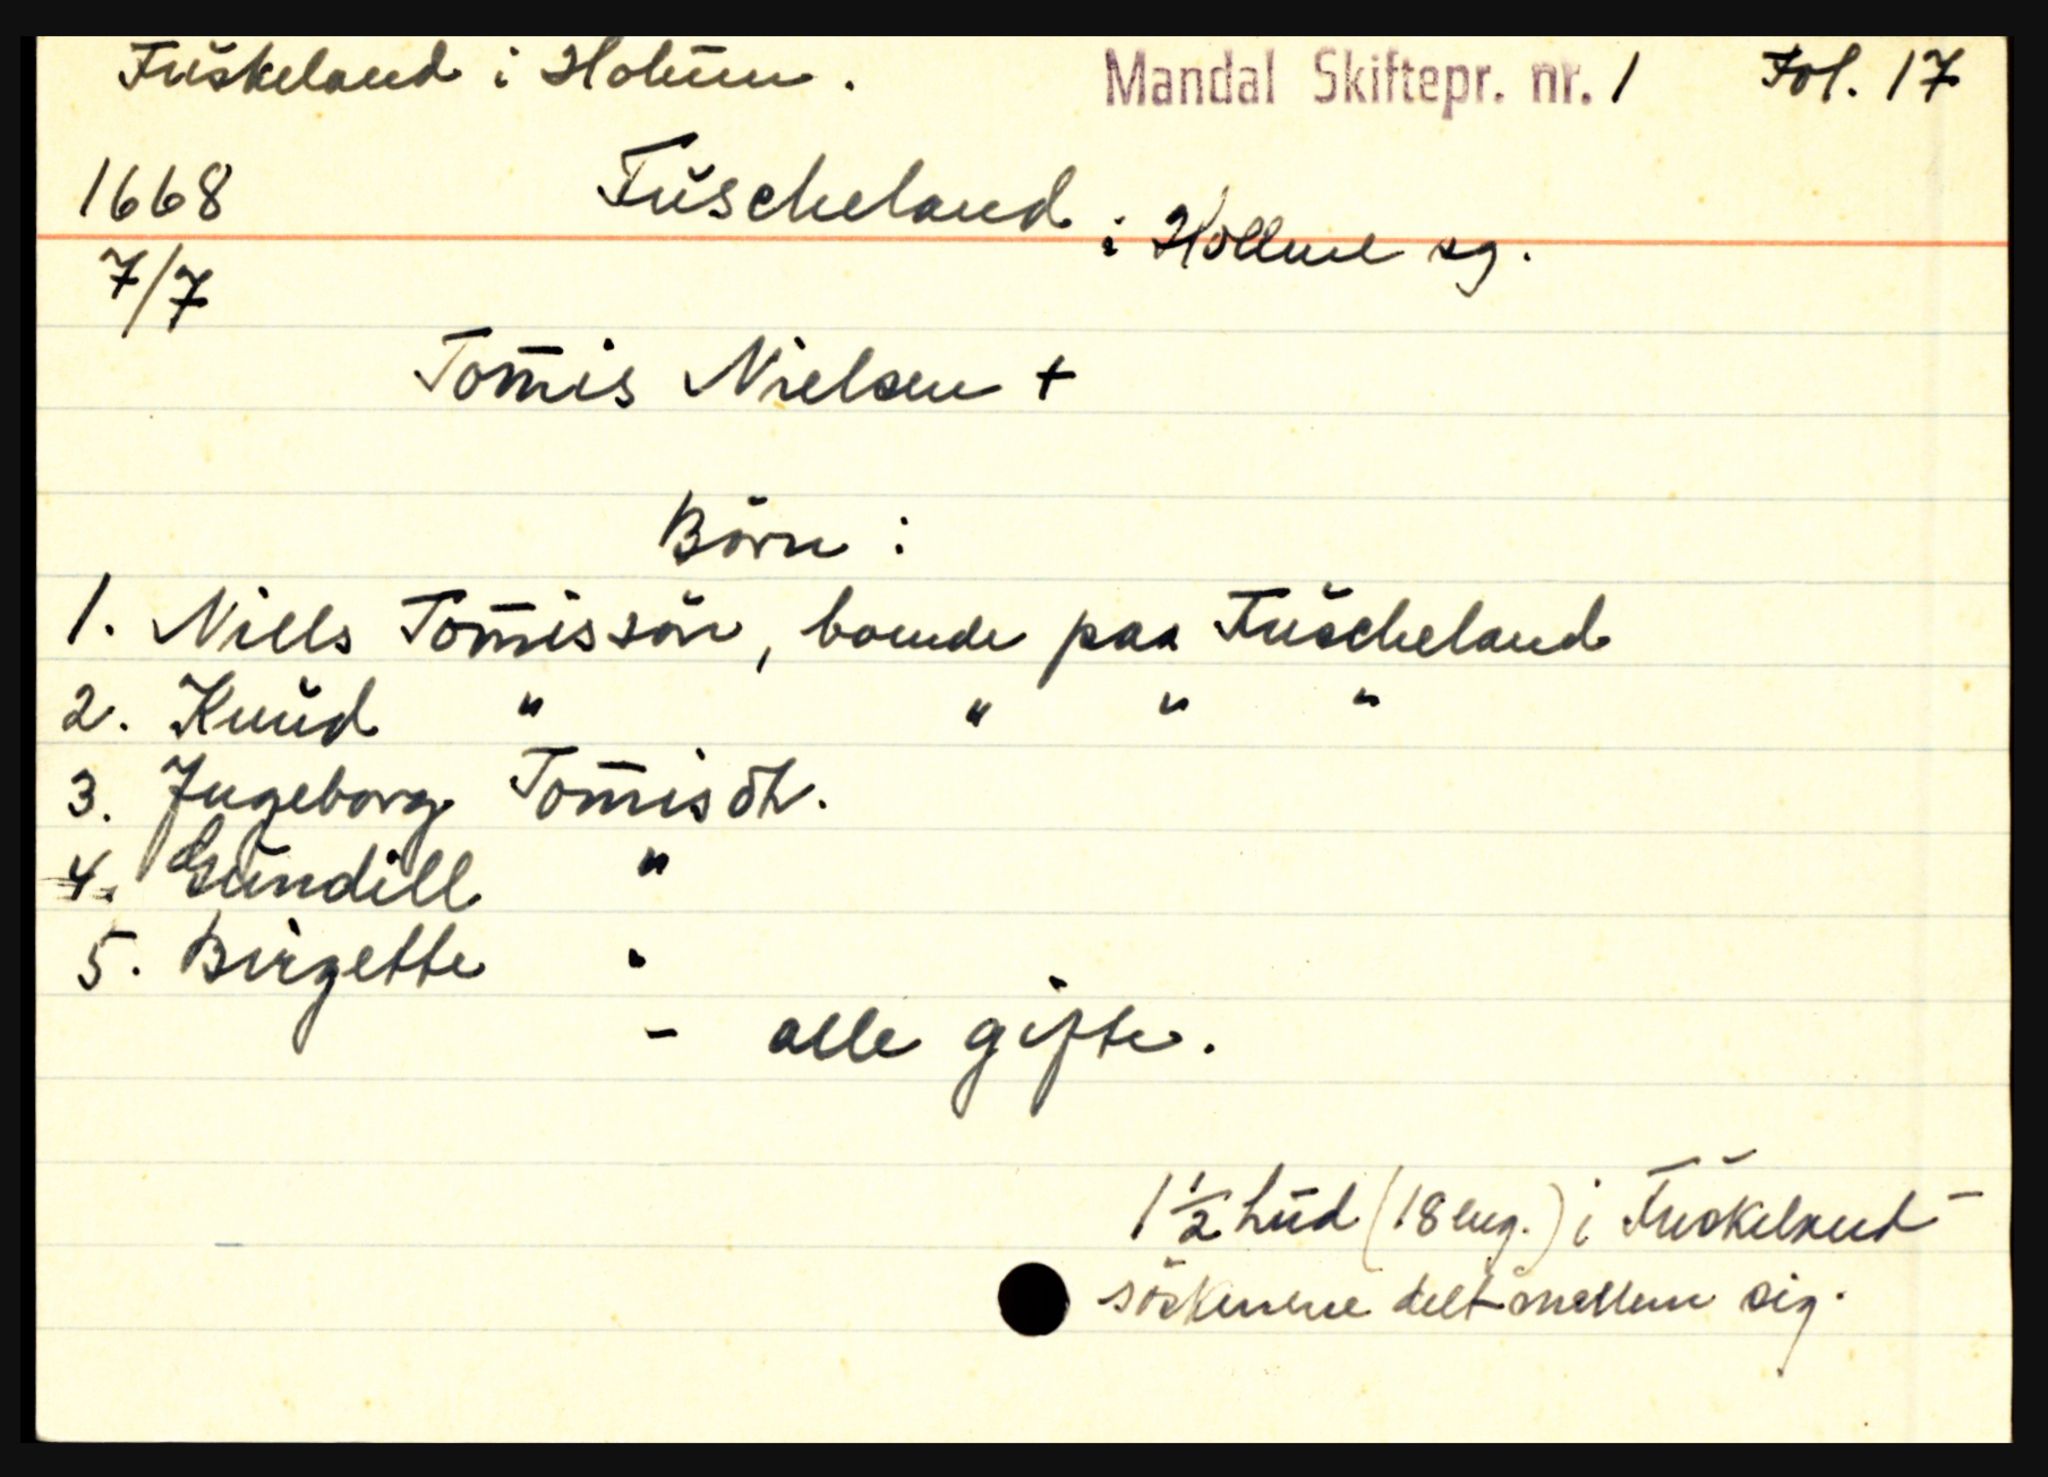 Fuskeland i Holum. Mandal Skiftepr. nr. 1 Fol. 17
1668 Fuscheland i Hollme sg.
7/7
Tom̄is Nielsen +
Börn :
1. Niels Tom̄issön, boende paa Fuscheland
2. Knud " " " "
3. Ingeborg Tom̄isdtr.
4. Gundill "
5. Birgette "
- alle gifte.
1 1/2 hud (18 eng.) i Fuskeland -
söskenene delt mellem sig.